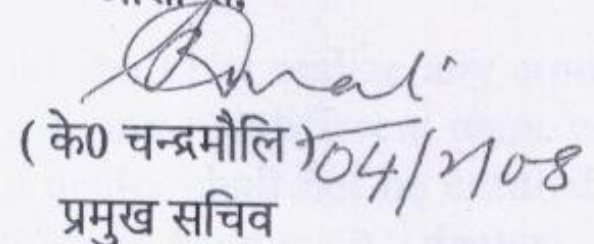 ( के0 चन्द्रमौलि ) 04/2/08
प्रमुख सचिव